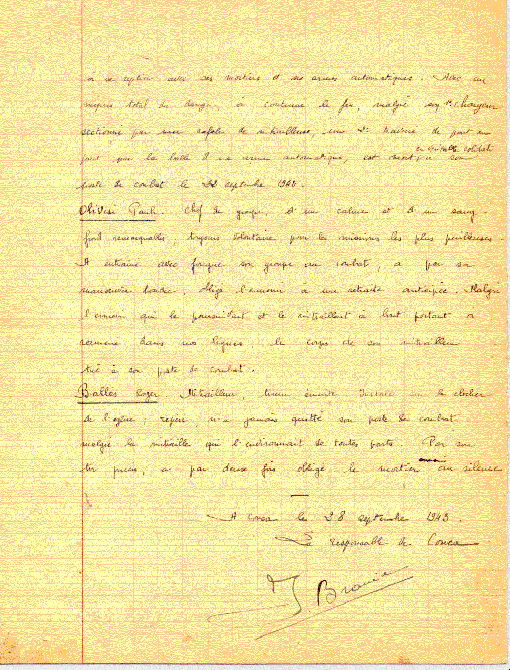 avec ses mortiers et ses armes automatiques. Avec un
mépris total du danger, a continué le feu, malgré son chargeur
sectionné par une rafale de mitrailleuse, une 2e de part en
en véritable soldat
part par la balle d'une arme automatique, est mort, à son
poste de combat le 22 septembre 1943.
Olivesi Paul. Chef de groupe, d'un calme et d'un sang-
froid remarquables, toujours volontaire pour les missions les plus périlleuses.
A entrainé avec fougue son groupe au combat, a par sa
manoeuvre hardie, obligé l'ennemi à une retraite anticipée. Malgré
l'ennemi qui le poursuivait et le mitraillait à bout portant a
ramené dans nos lignes, le corps de son mitrailleur
tué à son poste de combat.
Mitrailleur, tireur émérite sur le clocher
de l'église, repéré, n'a jamais quitté son poste de combat
malgré la mitraille qui l'environnait de toutes parts. Par son
tir précis, a par deux fois obligé le mortier au silence
A Conca le 28 septembre 1943.
Le responsable de Conca